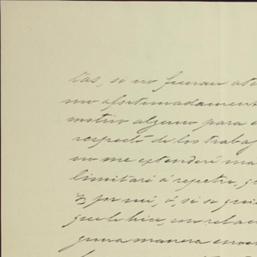 tas, si no fueran ate
mo afortunadament
motivo alguno para e
respecto de los trabaj
no me extenderé ma
limitaré á repetir, q
por mi, ó, si se qui
que le hice, en rela
guna manera